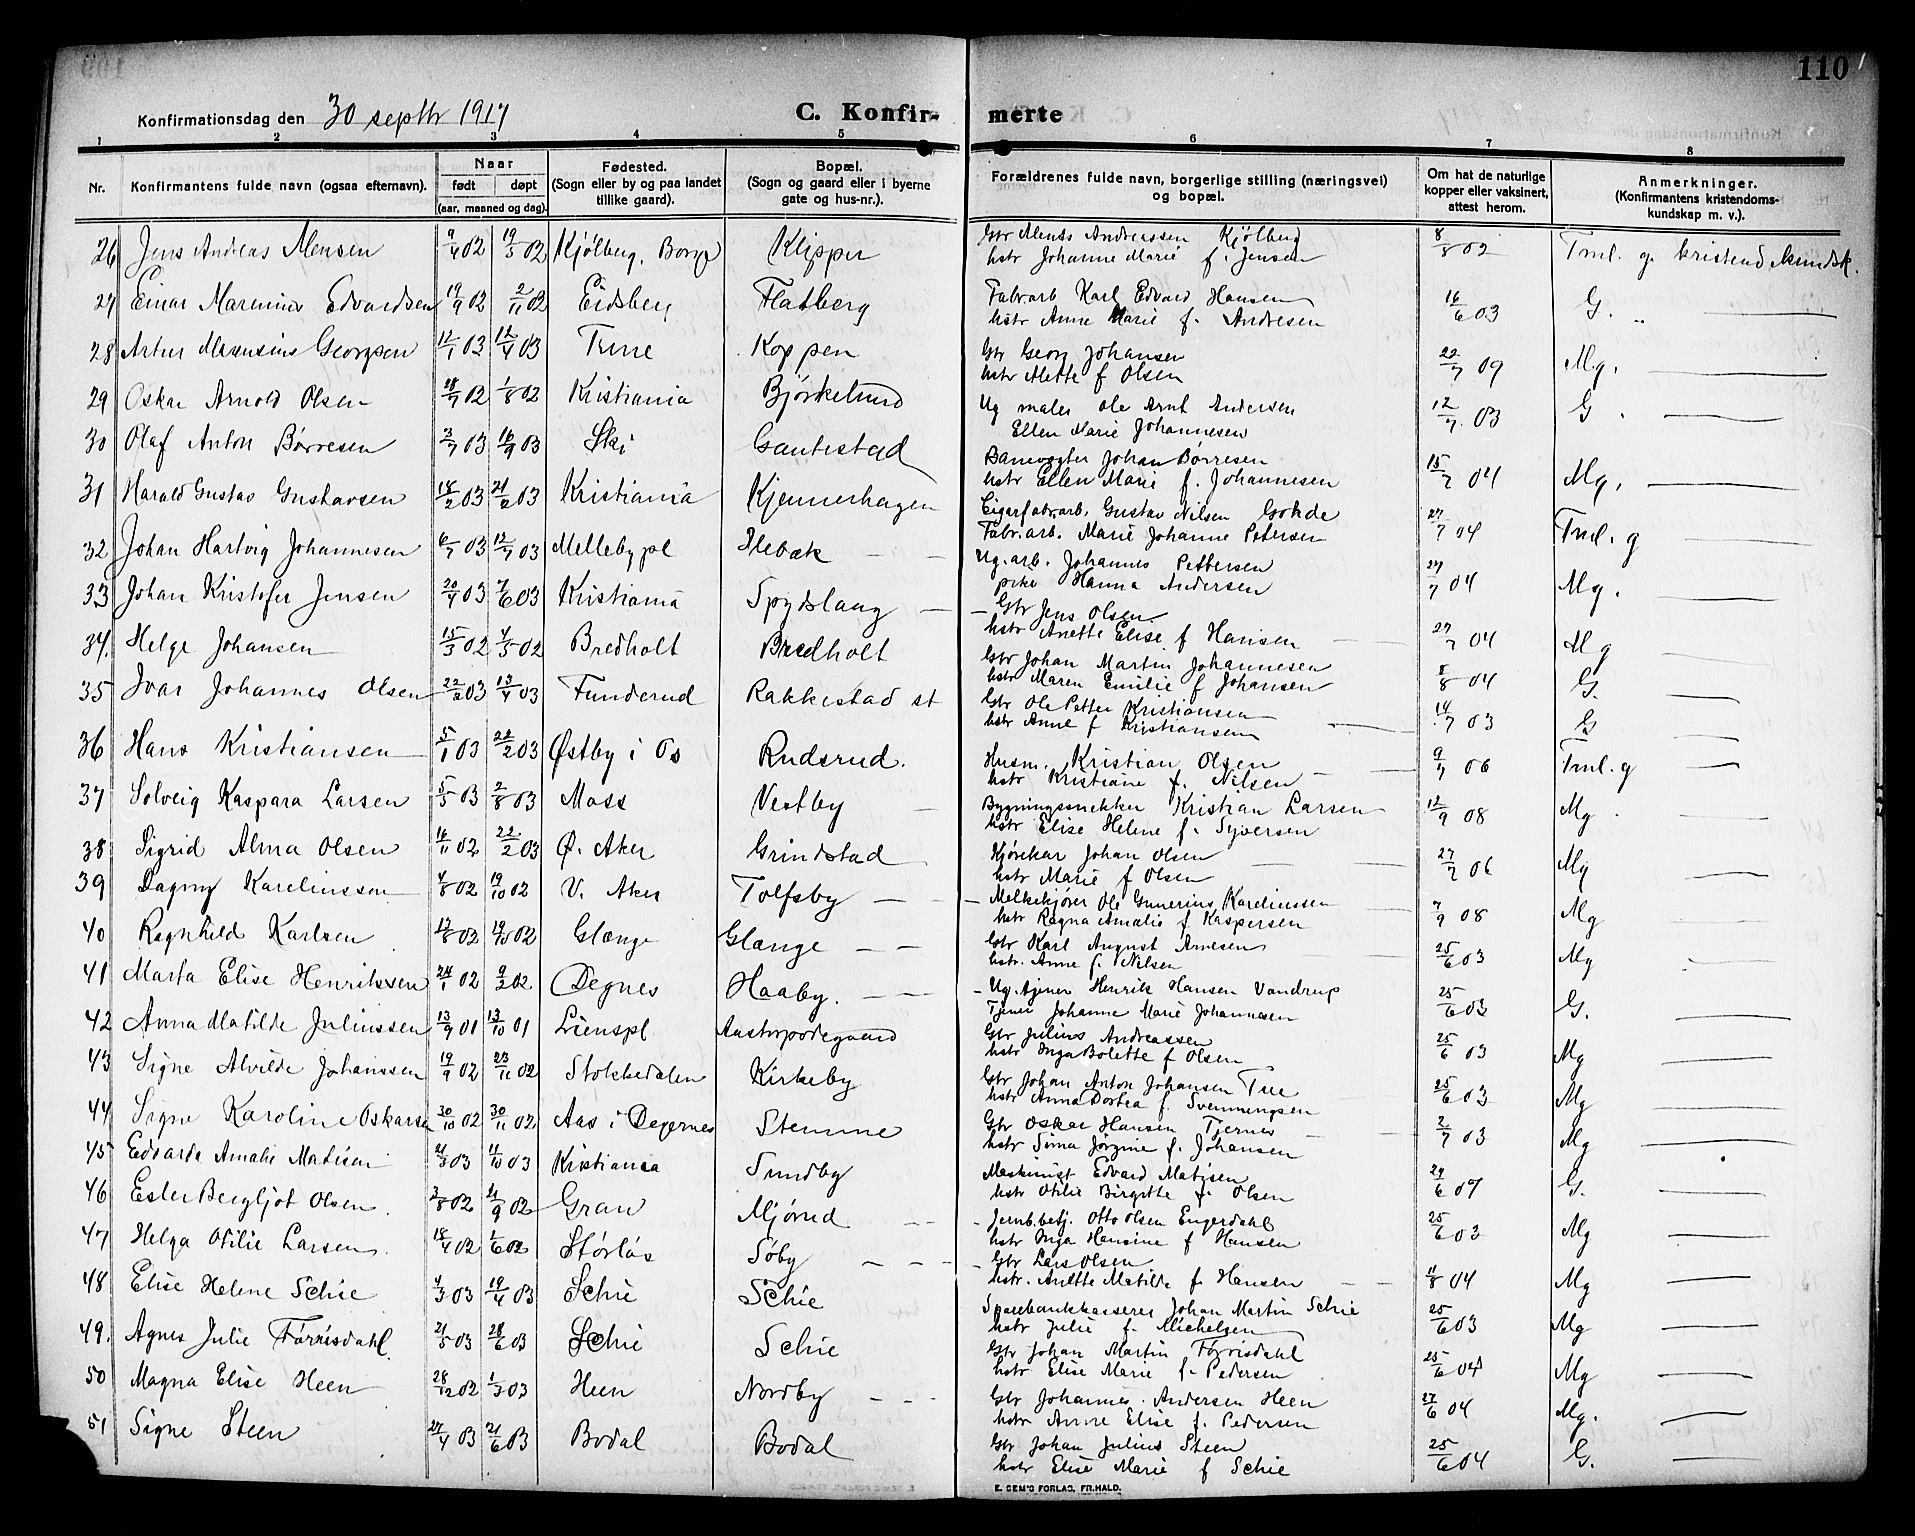 110
Konfirmationsdag den 30 septbr 1917
C. Konfir- merte
1 2 3 4 5 6 7 8
Nr. Konfirmantens fulde navn (ogsaa efternavn). Naar født døpt (aar, maaned og dag). Fødested. (Sogn eller by og paa landet tillike gaard). Bopæl. (Sogn og gaard eller i byerne gate og hus-nr.). Forældrenes fulde navn, borgerlige stilling (næringsvei) og bopæl. Om hat de naturlige kopper eller vaksinert, attest herom. Anmerkninger. (Konfirmantens kristendoms- kundskap m. v.).
26 Jens Andreas Mensen 9/4 02 19/5 02 Kjølberg, Borge Klipper Gbr Ments Andreassen Kjølberg hstr Johanne Marie f. Jensen 8/8 02 Tml. g. kristend. kundsk.
27 Einar Marenius Edvardsen 19/9 02 2/11 02 Eidsberg Flatberg Fabrarb Karl Edvard Hansen hstr Anne Marie f. Andresen 16/6 03 G. „ —
28 Artur Magnsius Georgsen 12/1 03 12/4 03 Tune Koppen Gbr Georg Johansen hstr Mette f Olsen 22/7 09 Mg. —
29 Oskar Arnold Olsen 28/7 02 1/8 02 Kristiania Bjørkelund Ug maler Ole Arnt Andersen Ellen Marie Johannesen 12/7 03 G. —
30 Olaf Anton Børresen 3/7 03 16/9 03 Ski Gautestad Banevogter Johan Børresen hstr Ellen Marie f. Johannesen 15/7 04 Mg. —
31 Harald Gustav Gustavsen 18/2 03 21/6 03 Kristiania Kjennerhagen Cigarfabrarb. Gustav Nilsen Gohde Fabr.arb. Marie Johanne Petersen 27/7 04 Tml. g —
32 Johan Hartvig Johannesen 6/7 03 12/7 03 Mellebypl Ilebæk — Ug. arb. Johannes Pettersen pike Hanna Andersen 27/7 04 Mg. —
33 Johan Kristofer Jensen 20/4 03 7/6 03 Kristiania Spydslaug — Gbr Jens Olsen hstr Anette Elise f Hansen 27/7 04 Mg —
34. Helge Johansen 15/3 02 4/5 02 Bredholt Bredholt Gbr Johan Martin Johannesen hstr Maren Emilie f Johansen 8/8 04 G. —
35 Ivar Johannes Olsen 22/2 03 13/4 03 Funderud Rakkestad st Gbr Ole Petter Kristiansen hstr Anne f Kristiansen 14/7 03 G —
36 Hans Kristiansen 5/1 03 22/2 03 Østby i Os Rudsrud. Husm. Kristian Olsen hstr Kristiane f. Nilsen 9/7 06 Tml. g —
37 Solveig Kaspara Larsen 5/5 03 2/8 03 Moss Vestby — Bygningssnekker Kristian Larsen hstr Elise Helene f. Syversen 12/9 08 Mg. —
38 Sigrid Alma Olsen 16/11 02 22/2 03 Ø. Aker Grindstad Kjørekar Johan Olsen hstr Marie f Olsen 27/7 06 Mg —
39 Dagny Karelinssen 4/8 02 19/10 02 V. Aker Tolfsby — Melkekjører Ole Gunerius Karelinssen hstr Ragna Amalie f Kaspersen 7/9 08 Mg —
40 Ragnhild Karlsen 12/8 02 19/10 02 Glænge Glænge — Gbr Karl August Arnesen hstr. Anne f. Nilsen 25/6 03 Mg —
41 Marta Elise Henrikssen 24/1 02 9/3 02 Degnes Haaby. — Ug. tjener Henrik Hansen Vandrup Tjener Johanne Marie Johannesen 25/6 03 G. —
42 Anna Matilde Juliussen 13/9 01 13/10 01 Lienspl Aastorpødegaard Gbr Julius Andreassen hstr Inga Bolette f Olsen 25/6 03 Mg —
43 Signe Alvilde Johanssen 19/9 02 23/11 02 Stokkedalen Kirkeby Gbr Johan Anton Johansen Tue hstr Anna Dortea f. Svenningsen 25/6 03 Mg —
44 Signe Karoline Oskarsen 30/10 02 30/11 02 Aas i Degernes Stemme Gbr Oskar Hansen Tjernes hstr Sina Jørgine f. Johansen 2/7 03 Mg —
45 Edvarda Amalie Matisen 21/3 03 11/10 03 Kristiania Sundby Maskinist Edvard Matisen hstr Otilie Birgitte f. Olsen 29/6 07 G. —
46 Ester Bergljot Olsen. 3/8 02 21/9 02 Gran Mjørud — Jernb.betj. Otto Olsen Engerdahl hstr Inga Hansine f Hansen 25/6 03 Mg —
47 Helga Otilie Larsen 18/4 02 1/6 02 Størlos Søby — Gbr Lars Olsen. hstr. Anette Matilde f. Hansen 11/8 04 Mg —
48 Elise Helene Schie 4/3 03 19/4 03 Schie Schie Sparebankkasserer Johan Martin Schie hstr Julie f. Michelsen 25/6 03 Mg —
49. Agnes Julie Førrisdahl. 21/5 03 28/6 03 Schie Schie Gbr Johan Martin Førrisdahl hstr Elise Marie f. Pedersen 25/6 04 Mg —
50 Magna Elise Heen 28/12 02 1/3 03 Heen Nordby — Gbr Johannes Andersen Heen hstr Anne Elise f. Pedersen 27/6 04 Mg. —
51 Signe Steen 27/4 03 21/6 03 Bodal Bodal Gbr Johan Julius Steen hstr Elise Marie f Schie 25/6 04 G. —
E. SEM'S FORLAG, FR.HALD.